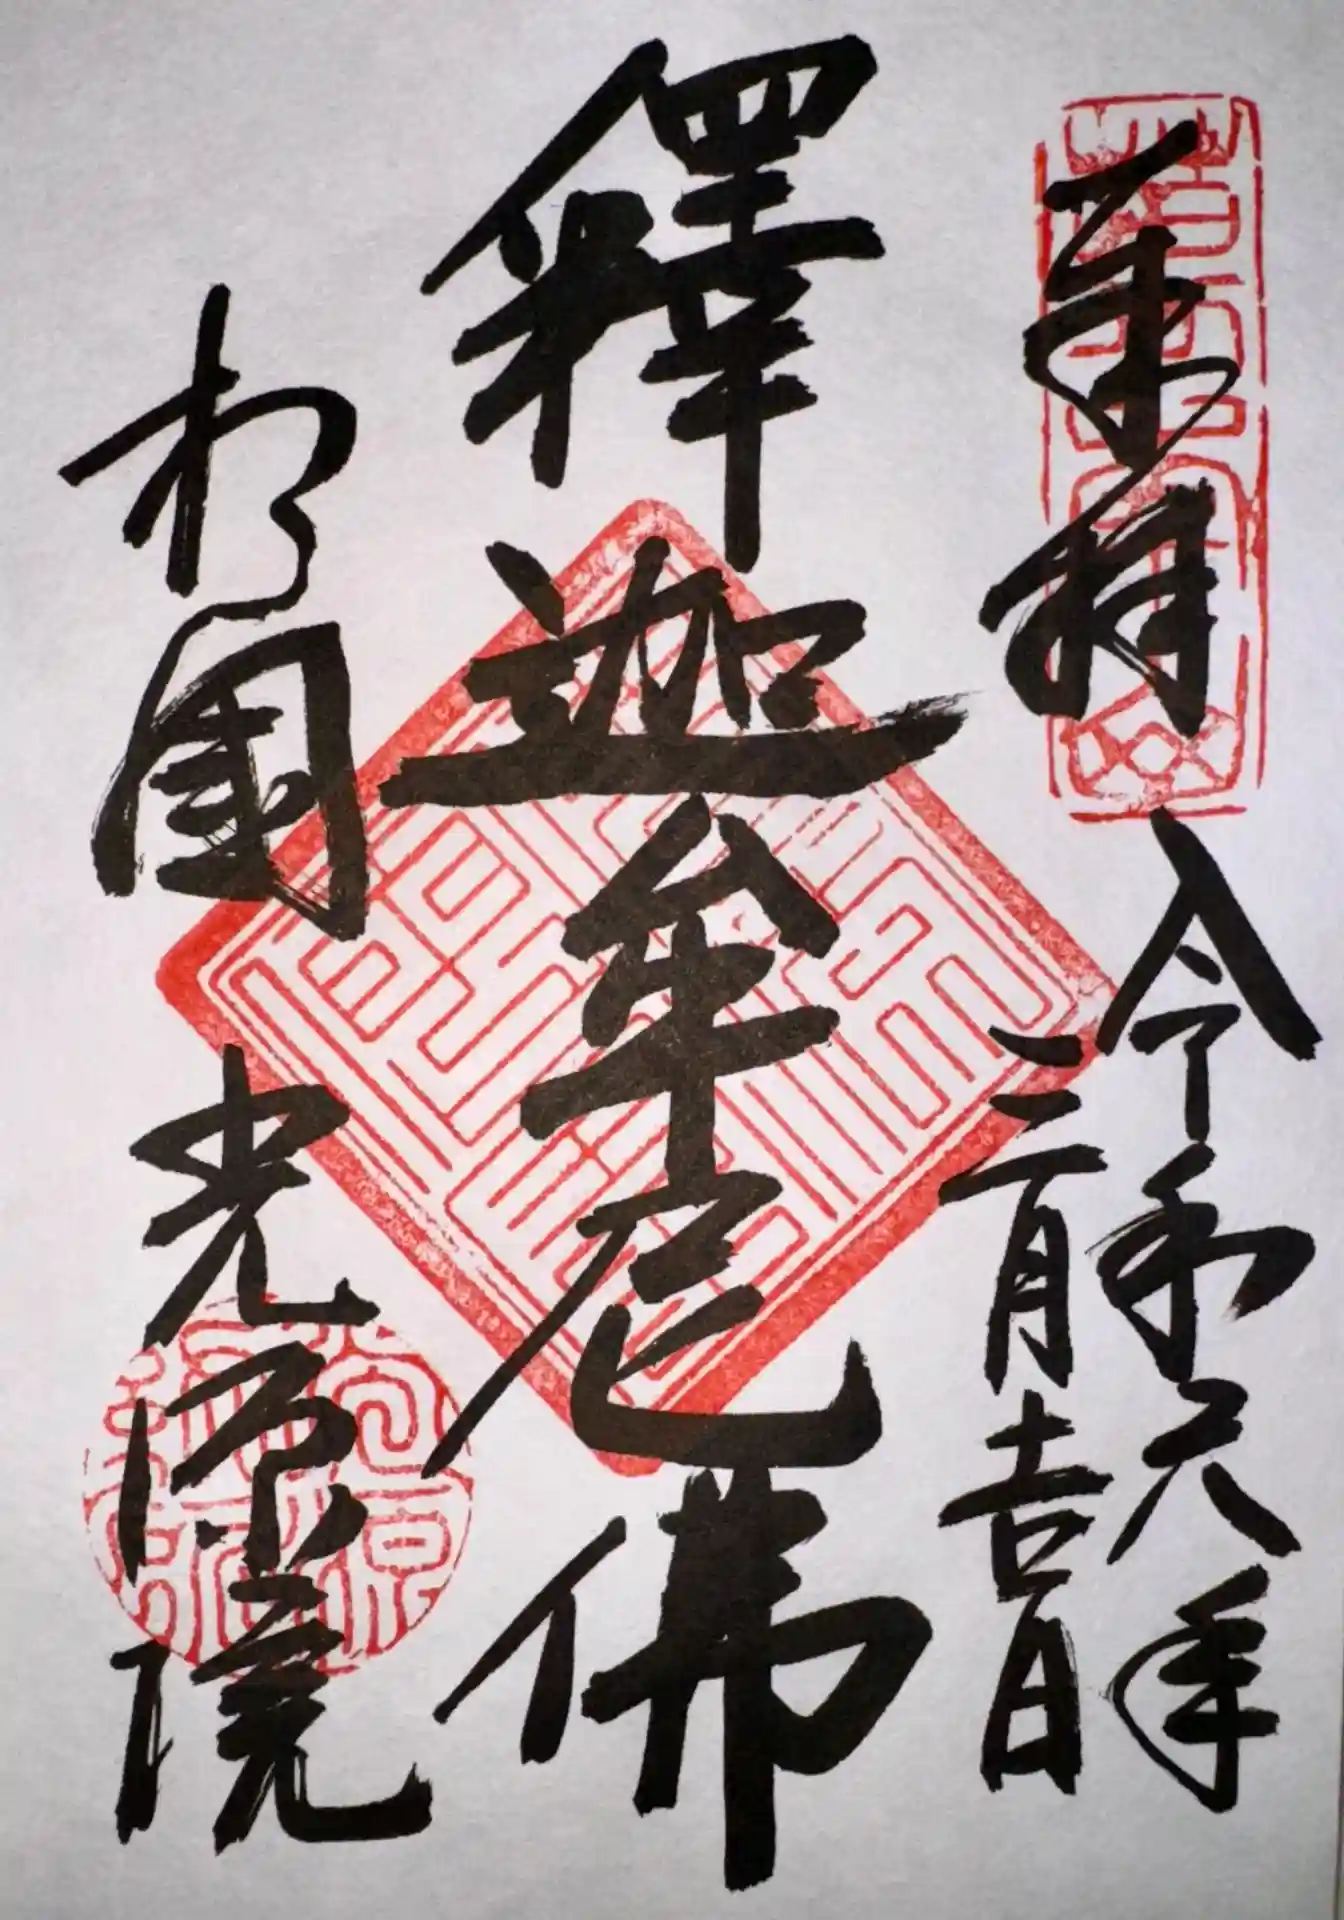 奉拝
令和六年
三月吉日
釋迦牟尼佛
相國 光源院